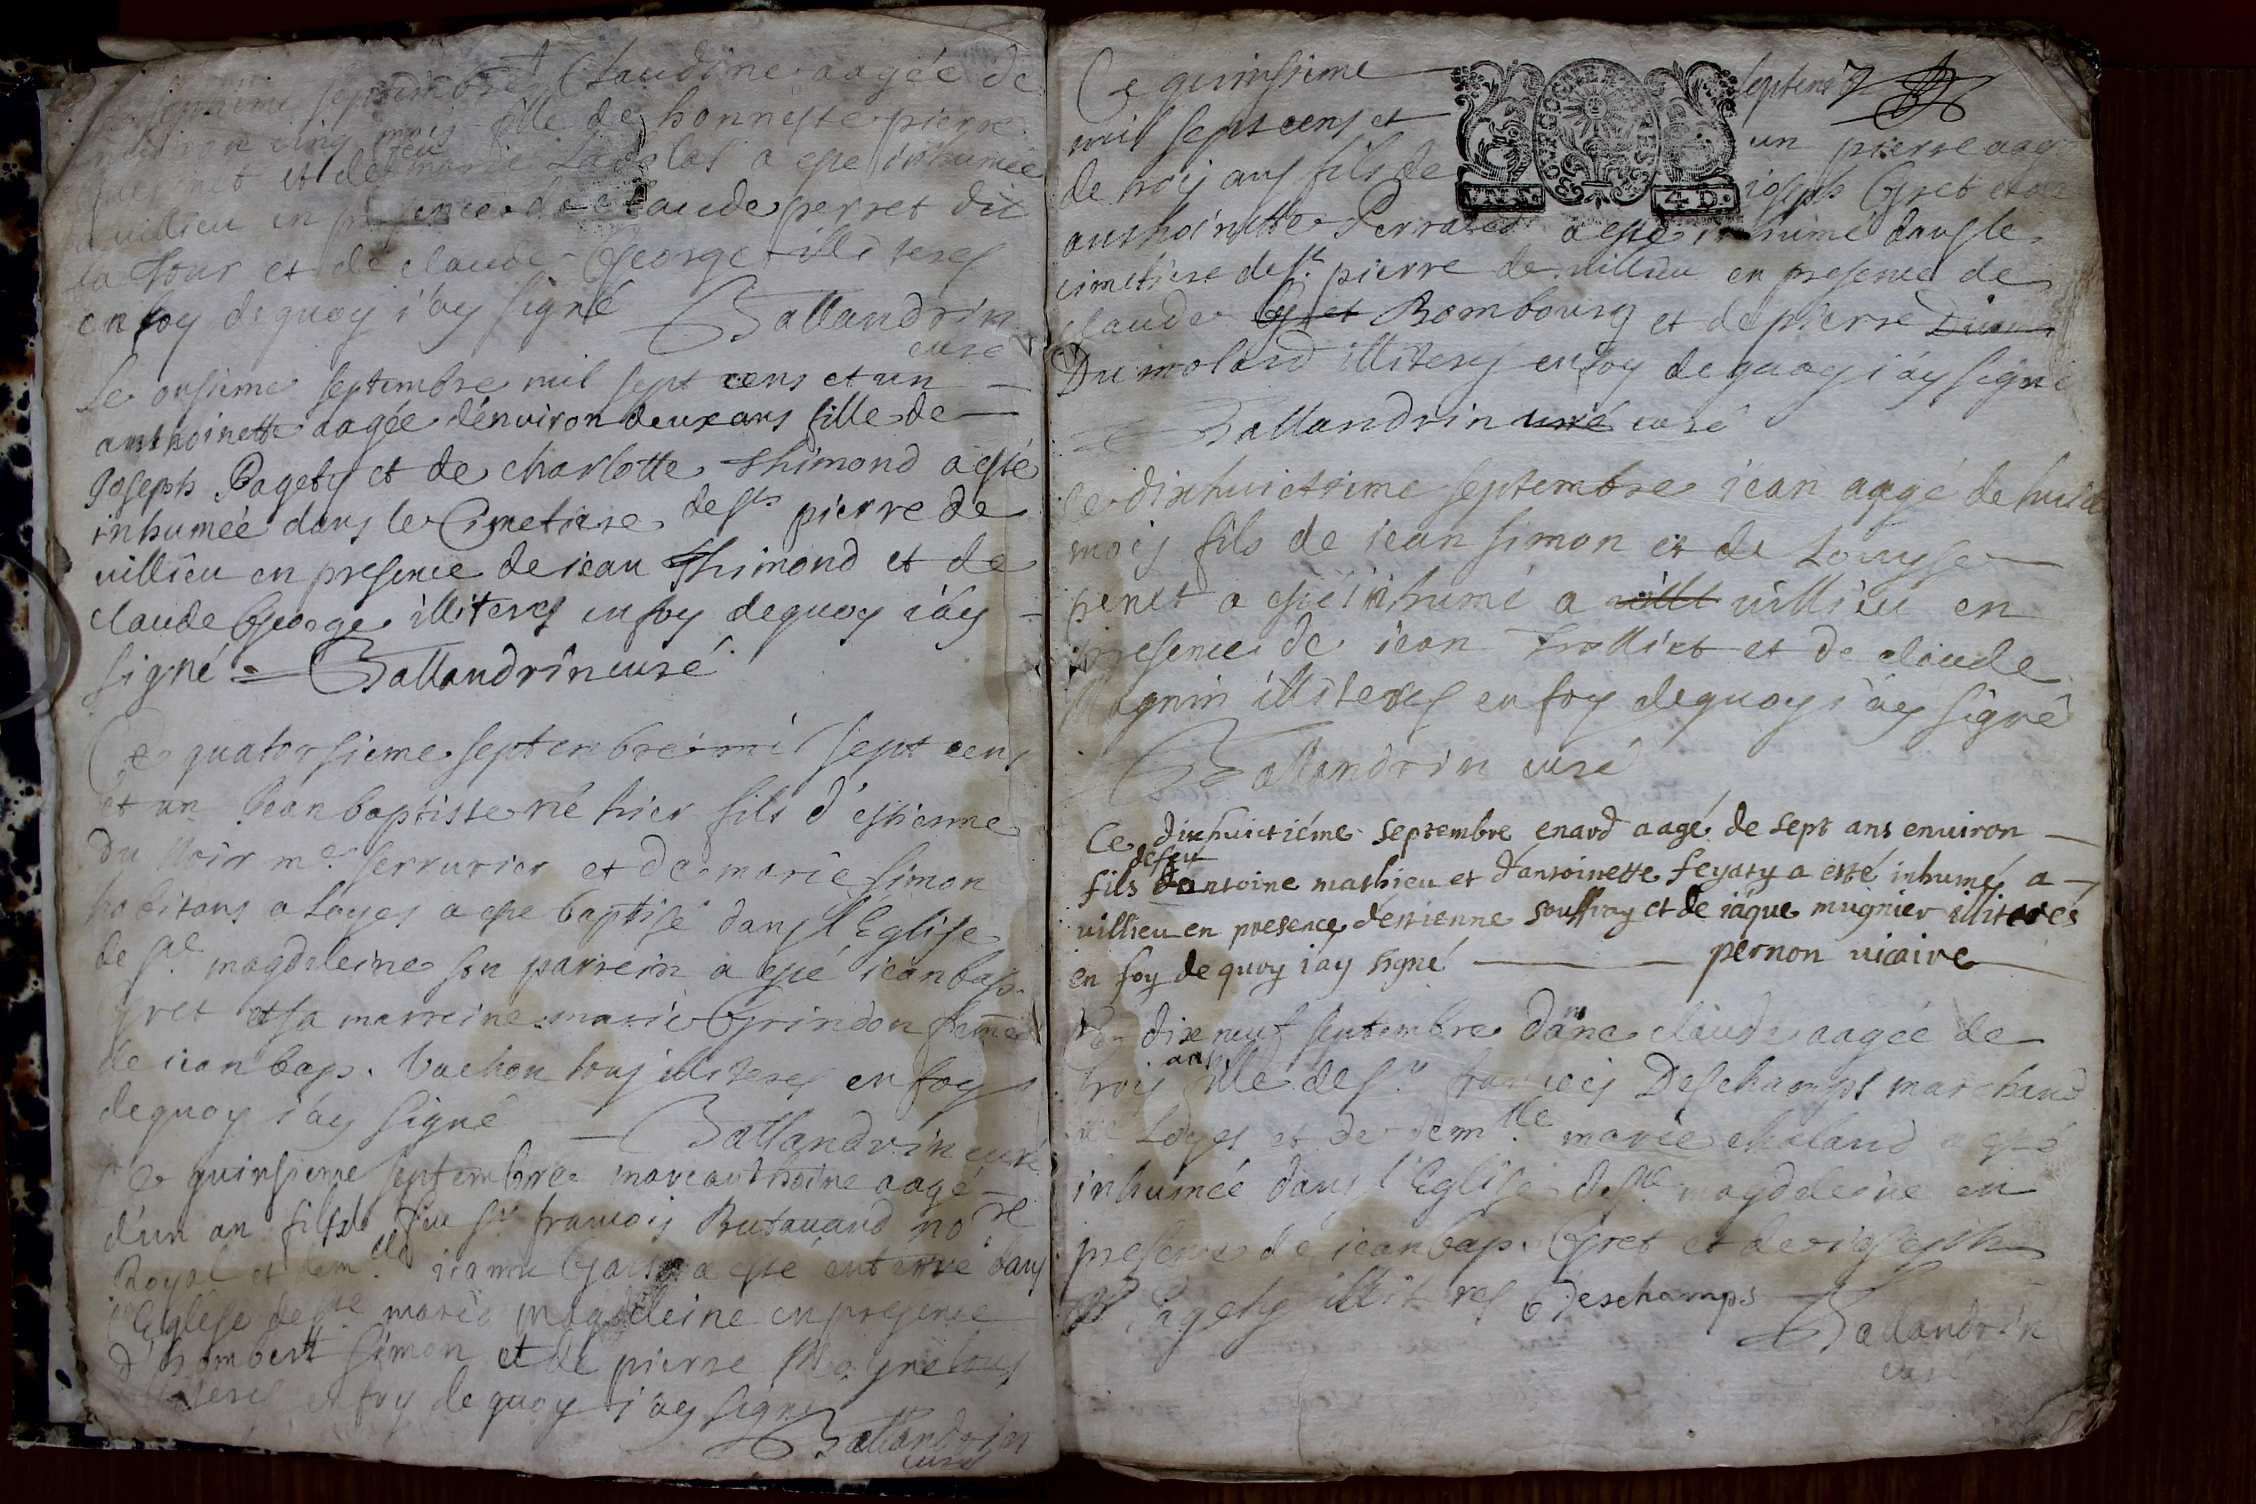 septembre Claudine aagée de
cinq mois fille de honneste pierre
et de feu marie a esté inhumée
a uillieu en presence de Claude perret dit
la Tour et de claude George illiteres
en foy de quoy i'ay signé Ballandrin
curé
Le onsieme septembre mil sept cens et un
anthoinette aagée d'enuiron deux ans fille de
Joseph Pagety et de charlotte Thimond a esté
inhumée dans le Cimetiere de st pierre de
uillieu en presence de iean Thimond et de
claude George illiteres en foy de quoy i'ay
signé Ballandrin curé
Ce quatorsieme septembre mil sept cens
et un Jean baptiste né hier fils d'estienne
Du Noir me serrurier et de marie simon
habitans a Loyes a esté baptisé dans l'Eglise
de ste magdeleine son parrein a esté iean bap.
Gret et sa marreine marie Grindon feme
de iean bap. Vachon tous illiteres en foy
de quoy i'ay signé Ballandrin curé
Ce quinsieme septembre marc anthoine aagé
d'un an fils de feu sr francois Brutauand nore
Royal et demlle ianne a esté enterré dans
l'Eglise de ste marie magdeleine en presence
d'humbert simon et de pierre Magne tous
illiteres en foy de quoy i'ay signé
Ballandrin
curé
Ce quinsieme septembre
mil sept cens et un pierre aagé
GEN
4 D.
de trois ans fils de ioseph Gret et de
anthoinette Perraud a esté inhumé dans le
cimetiere de st pierre de uillieu en presence de
claude Gret Rombourg et de pierre Dum
Du molard illiteres en foy de quoy i'ay signé
Ballandrin curé curé
Ce dixhuictieme septembre iean aagé de huict
mois fils de iean simon et de Louyse
penet a esté inhumé a uille uillieu en
presence de iean Trolliet et de claude
Magnin illiteres en foy de quoy i'ay signé
Ballandrin curé
Ce dixhuictiéme septembre enard aagé de sept ans enuiron
de feu
fils d'antoine mathieu et d'antoinette feyaty a esté inhumé a
uillieu en presence d'estienne souffray et de iâque mugnier illiteres
en foy de quoy i'ay signé pernon uicaire
Ce dixneuf septembre Dane claude aagée de
trois ans fille de sr francois Deschamps marchand
de Loyes et de demlle marie chaland a esté
inhumée dans l'Eglise de ste magdeleine en
presence de iean bap. Gret et de ioseph
Pagety illiteres Deschamps
Ballandrin
curé